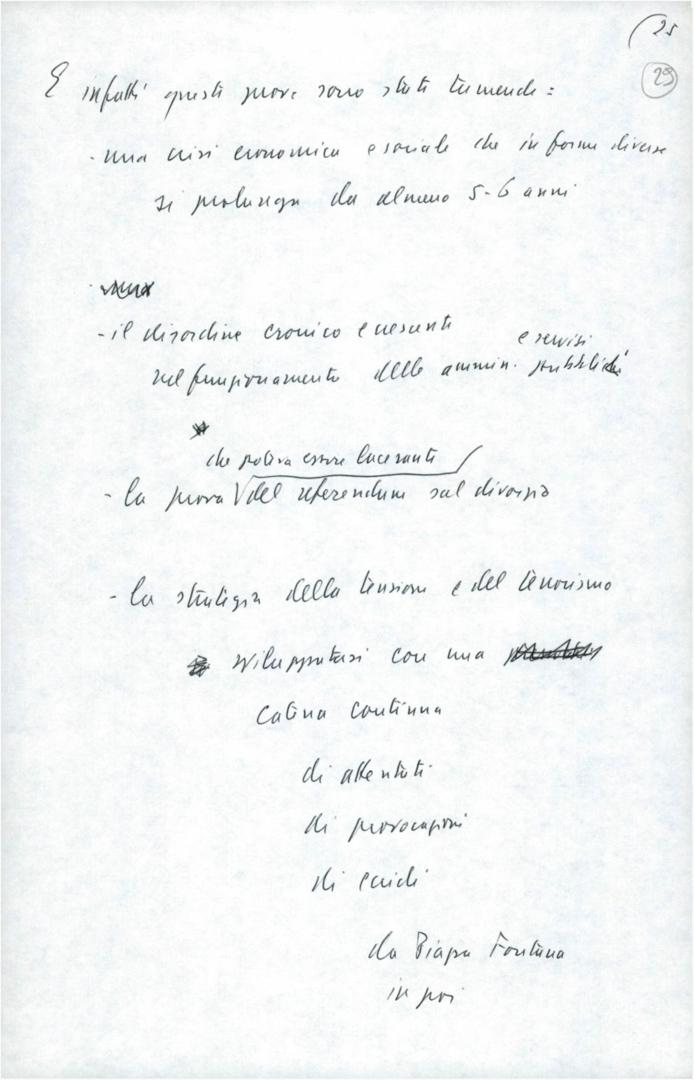 25
29
E infatti queste prove sono state tremende:
- una crisi economica e sociale che in forme diverse
si prolunga da almeno 5-6 anni
- il disordine cronico e crescente
e servizi
nel funzionamento delle ammin. pubbliche
che poteva essere lacerante
- la prova del referendum sul divorzio
- la strategia della tensione e del terrorismo
sviluppatasi con una
catena continua
di attentati
di provocazioni
di eccidi
da Piazza Fontana
in poi